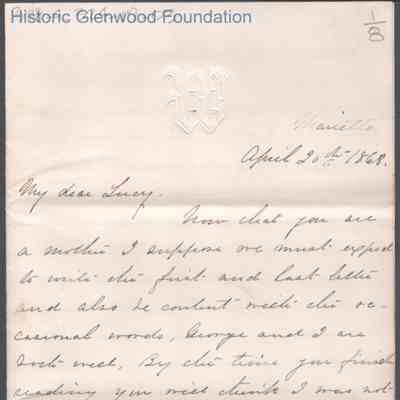 Historic Glenwood Foundation
1/8
W
Marietta
April 20th 1868.
My dear Lucy.
Now that you are
a mother I suppose we must expect
to write the first and last letter
and also be content with the oc-
casional words, George and I are
both well, By the time you finish
reading you will think I was not